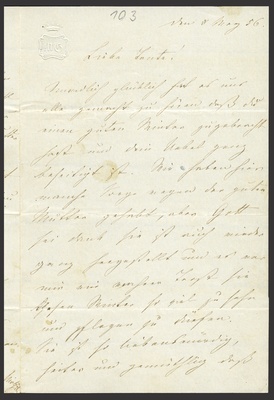 103
den 8 May 56.
Liebe Tante!
Unendlich glücklich hat es uns
alle gemacht zu hören daß du
einen guten Winter zugebracht
hast und dein Uebel ganz
beseitigt ist. Wir haben hier
manche Sorge wegen der guten
Mutter gehabt, aber Gott
sei dank sie ist auch wieder
ganz hergestellt und es war
mir ein wahrer Trost sie
diesen Winter so viel zu sehn
und pflegen zu dürfen.
Sie ist so liebenswürdig,
heiter und gemüthlich daß